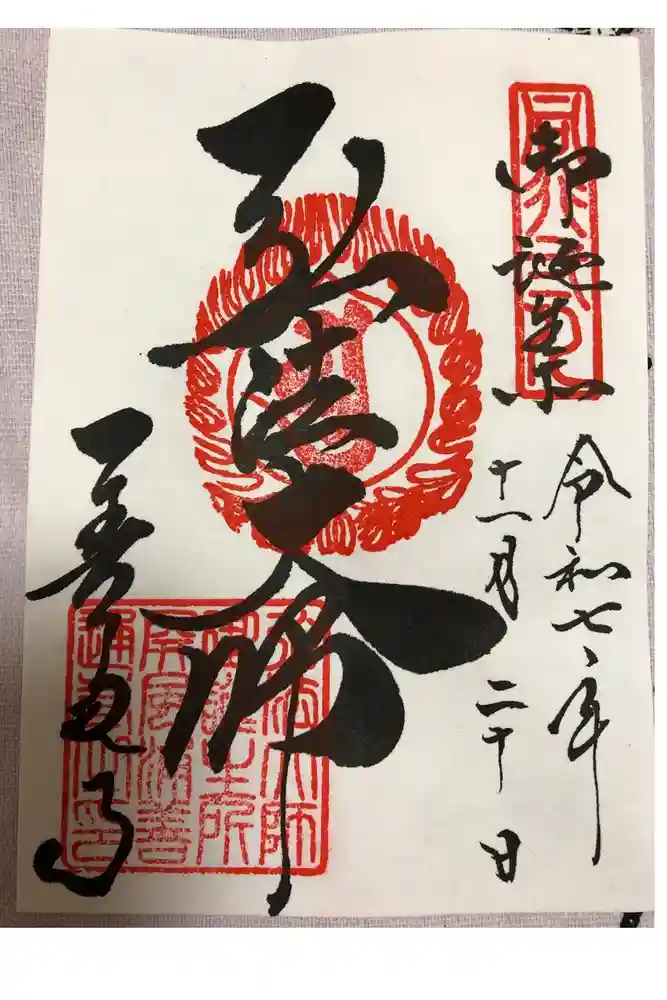 御誕生所
令和七年
十一月二十日
弘法大師
善通寺
弘法大師
御誕生所
屏風浦善
通寺之印